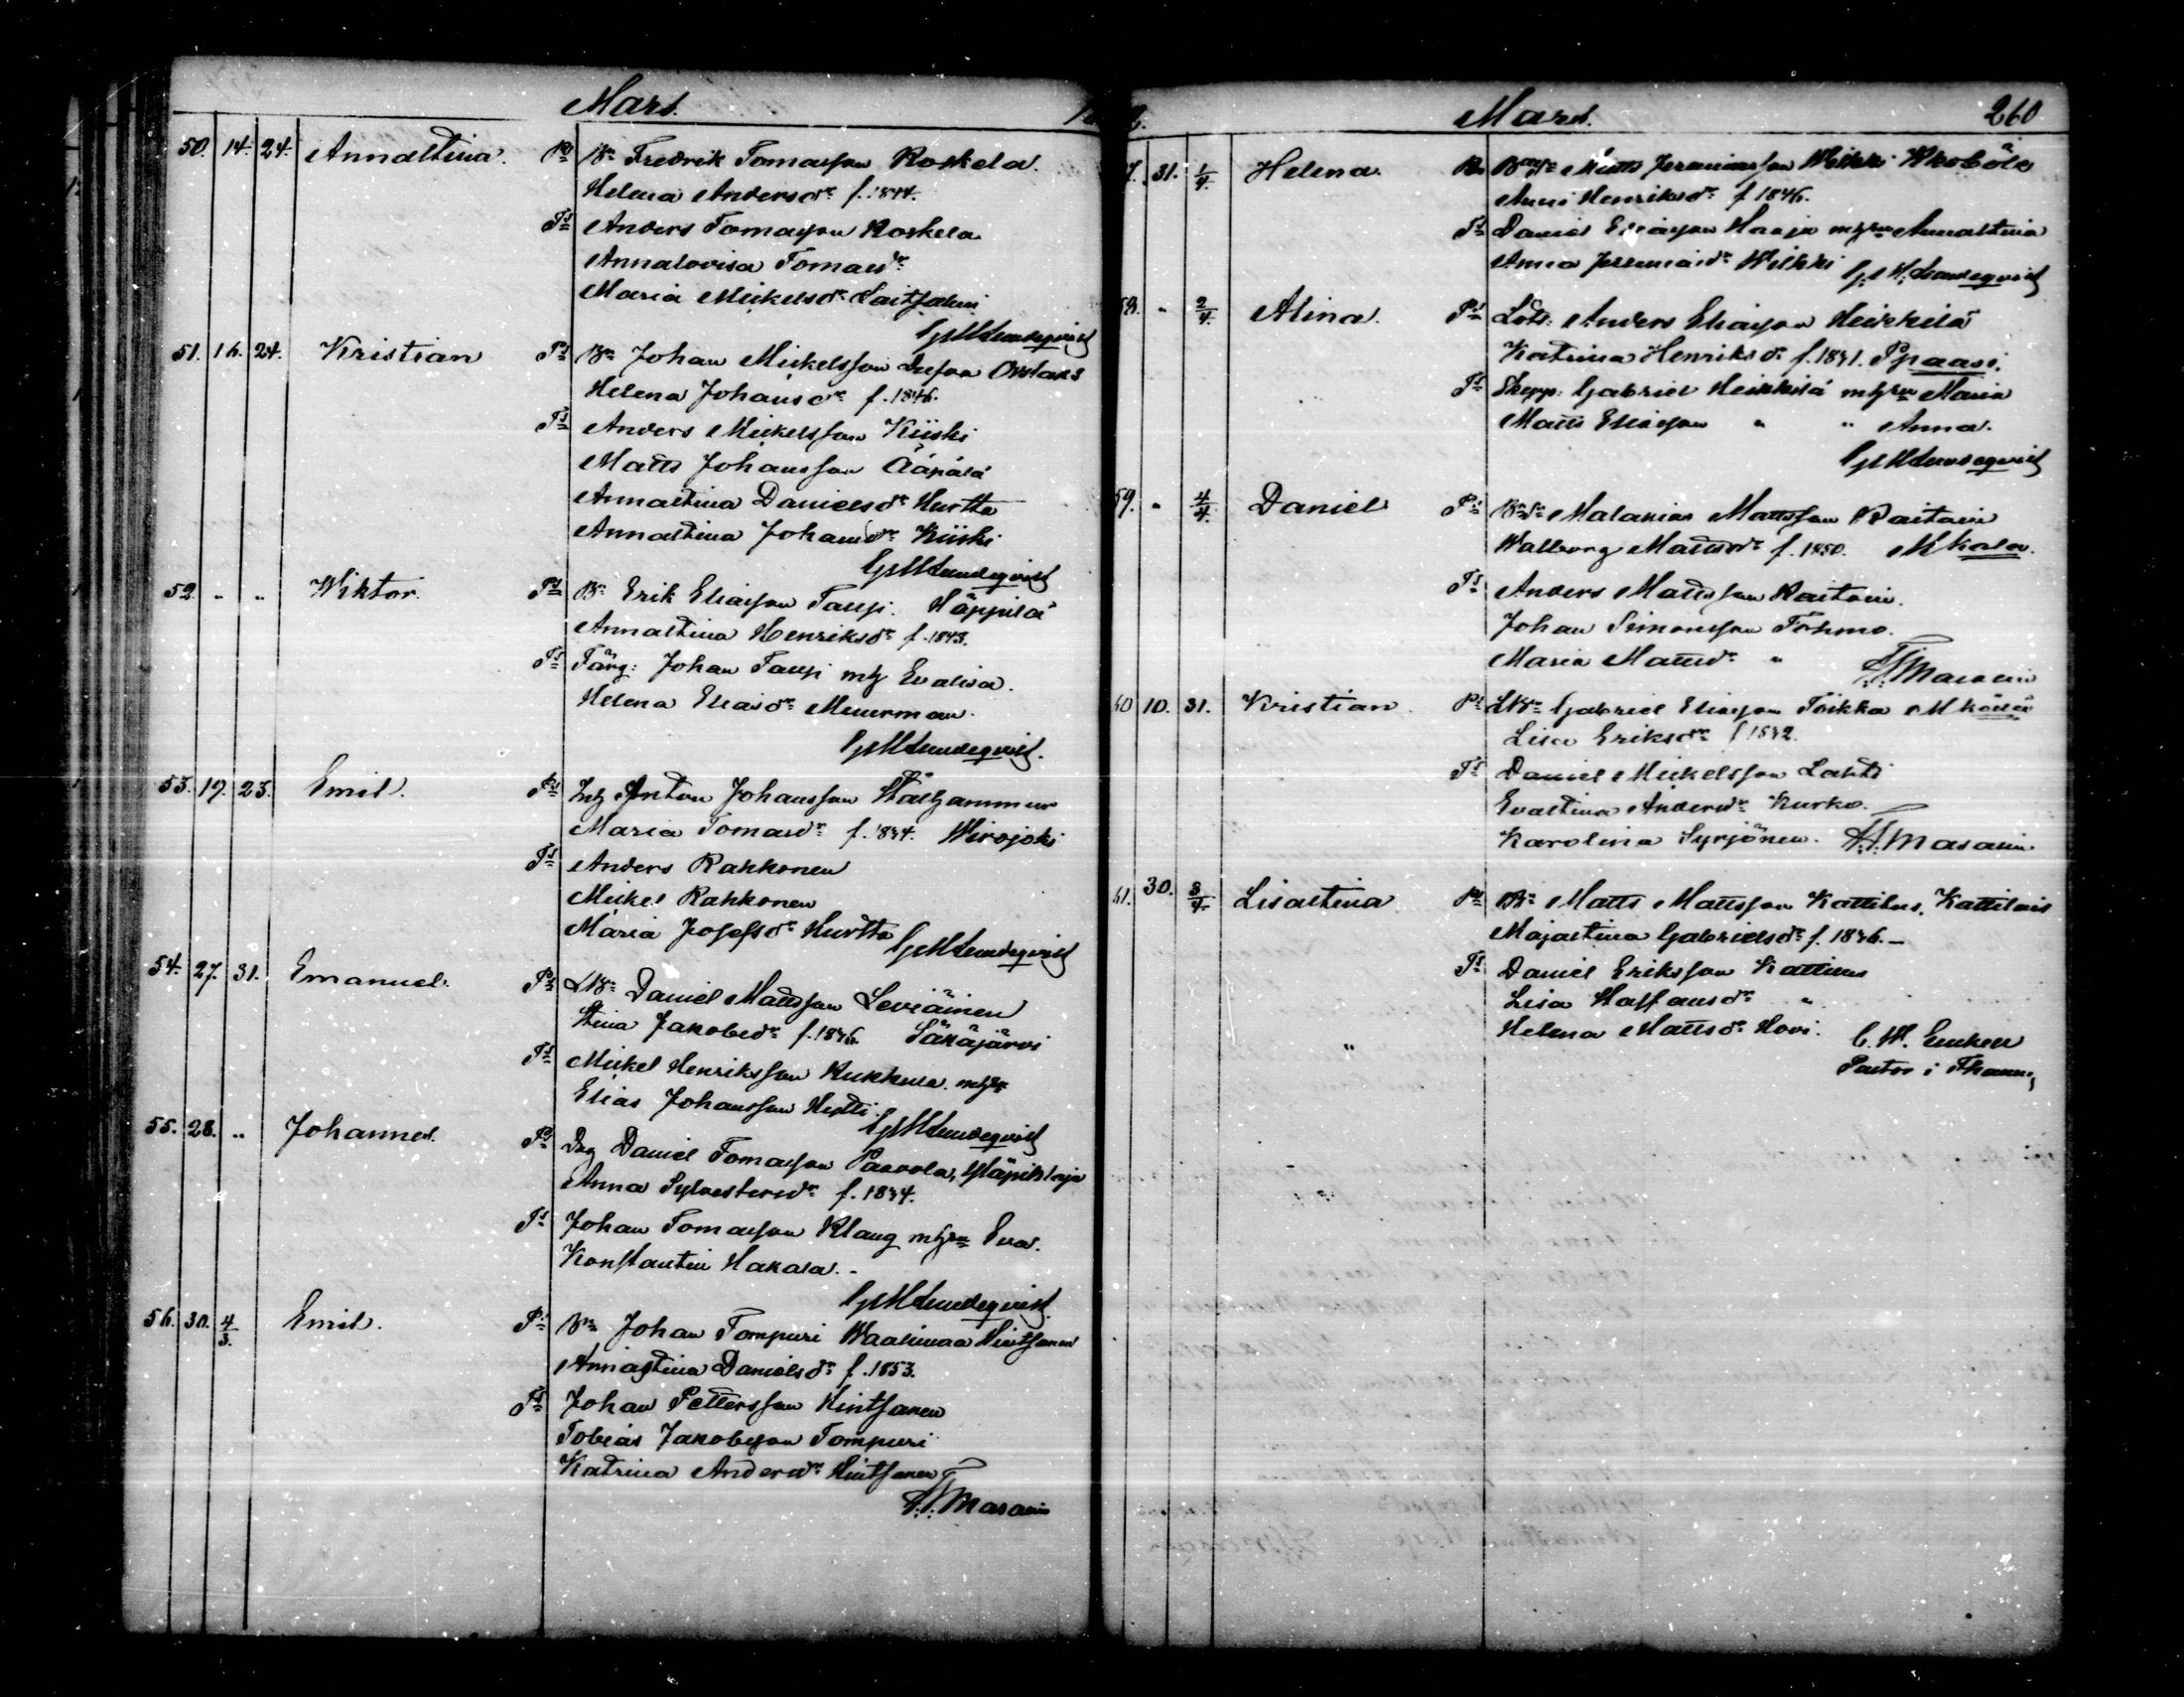 Mars.
50. 14. 24. Annastina. Ps Bn Fredrik Tomasson Koskela.
Helena Andersdr f. 1844.
Ts Anders Tomasson Koskela
Annalovisa Tomasdr
Maria Mickelsdr
G M Lundeqvist
51. 16. 24. Kristian Ps Bn Johan Mickelsson
Helena Johansdr f. 1846.
Ts Anders Mickelsson Kiiski
Matts Johansson Ääpälä
Annastina Danielsdr Hurtta
Annastina Johansdr Kiiski
G M Lundeqvist
52. " " Wiktor. Ps Bn Erik Eliasson Häppilä
Annastina Henriksdr f. 1843.
Ts Färg: Johan mh Evalisa.
Helena Eliasdr Meurman.
G M Lundeqvist.
53. 19. 23. Emil. Ps Inh Anton Johansson Stålhammar
Maria Tomasdr f. 1834. Wirojoki
Ts Anders Rahkonen
Mickel Rahkonen
Maria Josefsdr Hurtta
G M Lundeqvist
54. 27. 31. Emanuel. Ps LBn Daniel Mattsson Leviäinen
Stina Jakobsdr f. 1846. Säkäjärvi
Ts Mickel Henriksson Kukkula mhru
Elias Johansson
G M Lundeqvist
55. 28. " Johannes. Ps Drg Daniel Tomasson Paavola,
Anna Sylvestersdr f. 1834.
Ts Johan Tomasson Klaug mhru Eva.
Konstantin Hakala.
G M Lundeqvist.
56. 30. 4/3. Emil. Ps Bn Johan Tompuri Waalimaa Hintsanen
Annastina Danielsdr f. 1853.
Ts Johan Pettersson Hintsanen
Tobias Jakobsson Tompuri
Katrina Andersdr Hintsanen
F. F. Masalin
Mars. 260
7. 31. 1/4. Helena. Ps Matts Jeremiasson Wilkki
Anni Henriksdr f 1846.
Ts Daniel Eliasson Haaja mhru Annastina
Anna Jeremiasdr Wilkki G M Lundeqvist
58. " 2/4. Alina. Ps Lots: Anders Eliasson Heikkilä
Katrina Henriksdr f. 1841. Pyaasi.
Ts Skepp: Gabriel Heikkilä mhru Maria
Matts Eliasson " " Anna.
G M Lundeqvist
59. " 4/4. Daniel Ps Malakias Mattsson Raitain
Walborg Mattsdr f. 1850. Mkala.
Ts Anders Mattsson Raitain.
Johan Simonsson Torkmo.
Maria Mattsdr " F. F. Masalin
60 10. 31. Kristian. Ps LBn Gabriel Eliasson Toikka Mkälä
Lisa Eriksdr f 1832.
Ts Daniel Mickelsson Lahti
Evastina Andersdr Kurko.
Karolina Syrjönen. F. F. Masalin
61. 30. 3/4. Lisastina Ps Bn Matts Mattsson Kattilus, Kattilais
Majastina Gabrielsdr f. 1836.
Ts Daniel Eriksson Kattilus
Lisa Staffansdr "
Helena Mattsdr Hovi. C. W. Enckell
" Pastor i Fhamn,